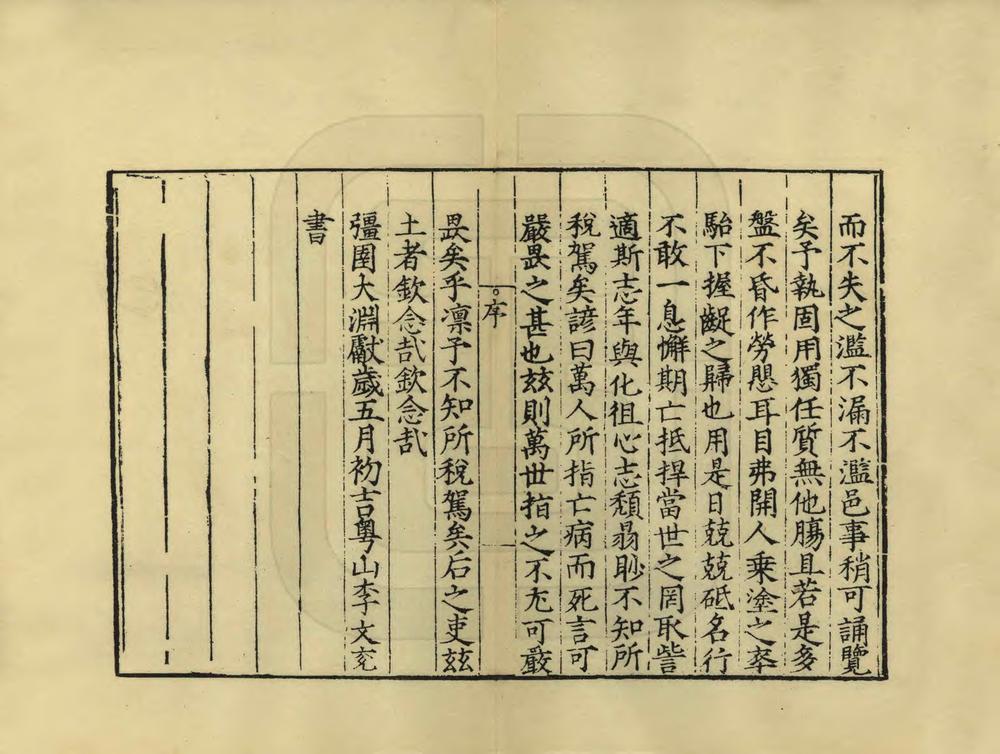 而不失之濫不漏不濫邑事稍可誦覽
矣予執固用獨任質無他腸且若是多
盤不昏作勞愳耳目弗開人乗塗之卒
駘下握齪之歸也用是日兢兢砥名行
不敢一息懈期亡抵捍當世之罔取訾
適斯志年與化徂心志頹曷眇不知所
稅駕矣諺曰萬人所指亡病而死言可
嚴畏之甚也玆則萬世指之不尤可嚴
序
畏矣乎凛予不知所稅駕矣后之吏玆
土者欽念哉欽念哉
彊圉大淵獻歲五月初吉粤山李文兖
書